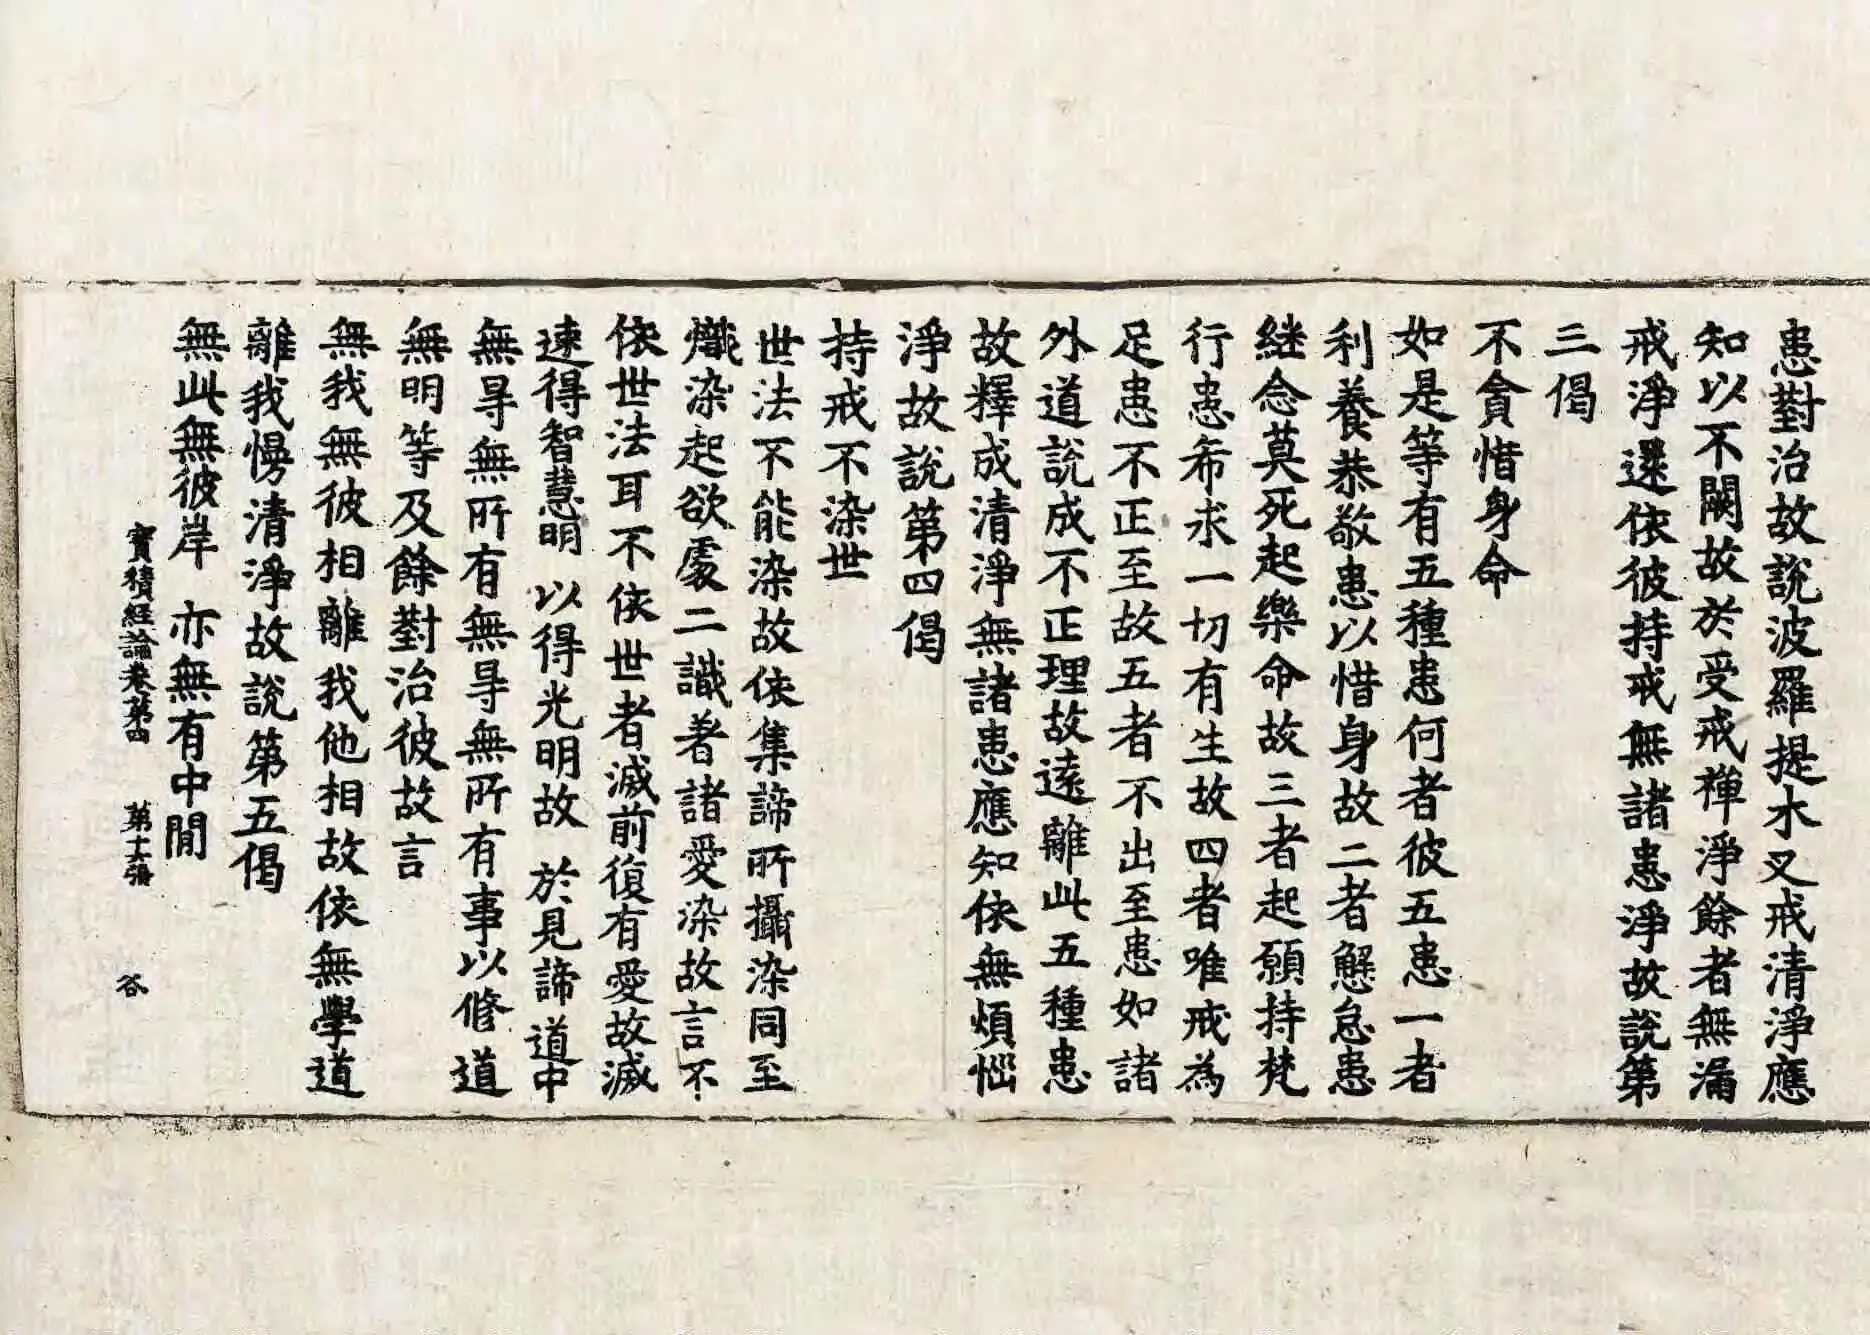 患對治故說波羅提木叉戒清淨應
知以不闕故於受戒禪淨餘者無漏
戒淨還依彼持戒無諸患淨故說第
三偈
不貪惜身命
如是等有五種患何者彼五患一者
利養恭敬患以惜身故二者懈怠患
継念莫死起樂命故三者起願持梵
行患希求一切有生故四者唯戒為
足患不正至故五者不出至患如諸
外道說成不正理故遠離此五種患
故釋成清淨無諸患應知依無煩惱
淨故說第四偈
持戒不染世
世法不能染故依集諦所攝染同至
熾染起欲處二識著諸愛染故言不
依世法耳不依世者滅前復有愛故滅
速得智慧明 以得光明故 於見諦道中
無㝵無所有無㝵無所有事以修道
無明等及餘對治彼故言
無我無彼相離我他相故依無學道
離我慢清淨故說第五偈
無此無彼岸 亦無有中間
寶積經論卷第四 第十六張 谷